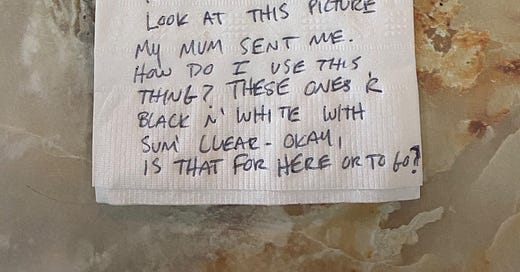 LOOK AT THIS PICTURE
MY MUM SENT ME.
HOW DO I USE THIS
THING? THESE ONES R
BLACK N' WHITE WITH
SUM' CLEAR - OKAY,
IS THAT FOR HERE OR TO GO?